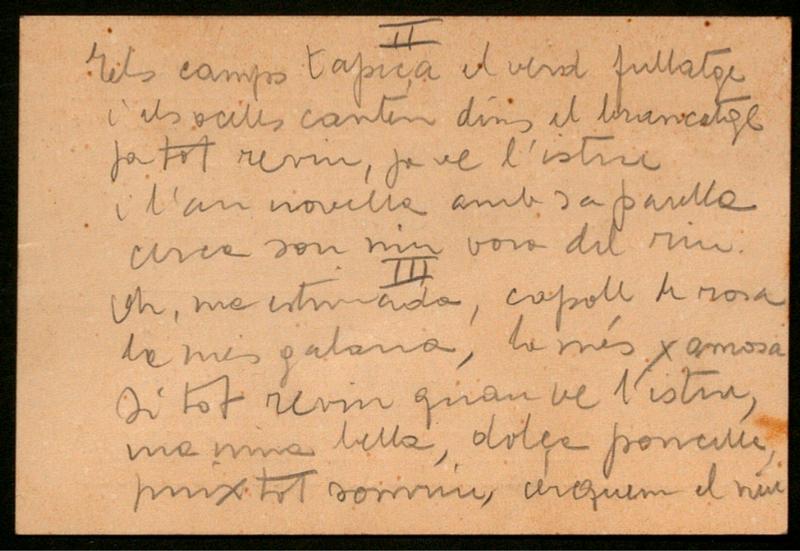 II
Pels camps tapiça el verd fullatge
i els ocells canten dins el brancatge
ja tot reviu, ja ve l'istiu
i l'au novella amb sa parella
cerca son niu vora del riu.
III
Oh, ma estimada, capoll de rosa
la mes galana, la més xamosa
Si tot reviu quan ve l'istiu,
ma nina bella, dolça poncella,
puix tot somriu, cerquem el niu